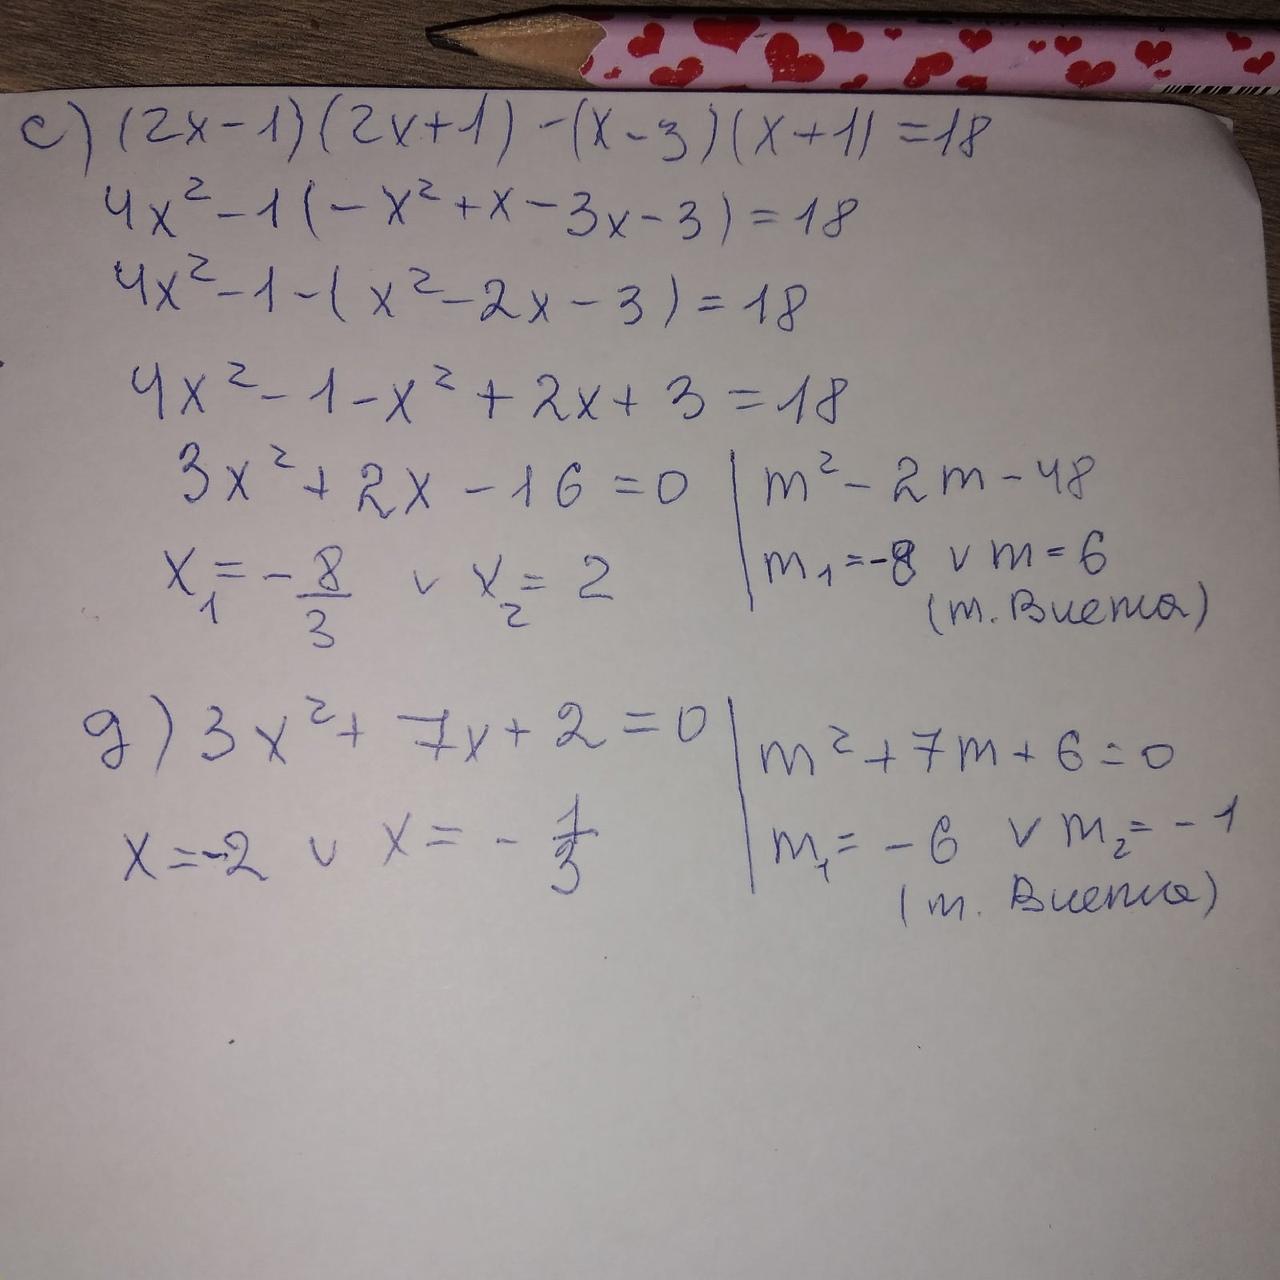 c) (2x-1)(2x+1) -(x-3)(x+1) =18
4x²-1(-x²+x-3x-3)=18
4x²-1-(x²-2x-3)=18
4x²-1-x²+2x+3=18
3x²+2x-16=0 | m²-2m-48
x₁=-8/3 v x₂=2 | m₁=-8 v m=6
(т. Виета)
g) 3x²+7x+2=0 | m²+7m+6=0
x=-2 v x=-1/3 | m₁=-6 v m₂=-1
(т. Виета)